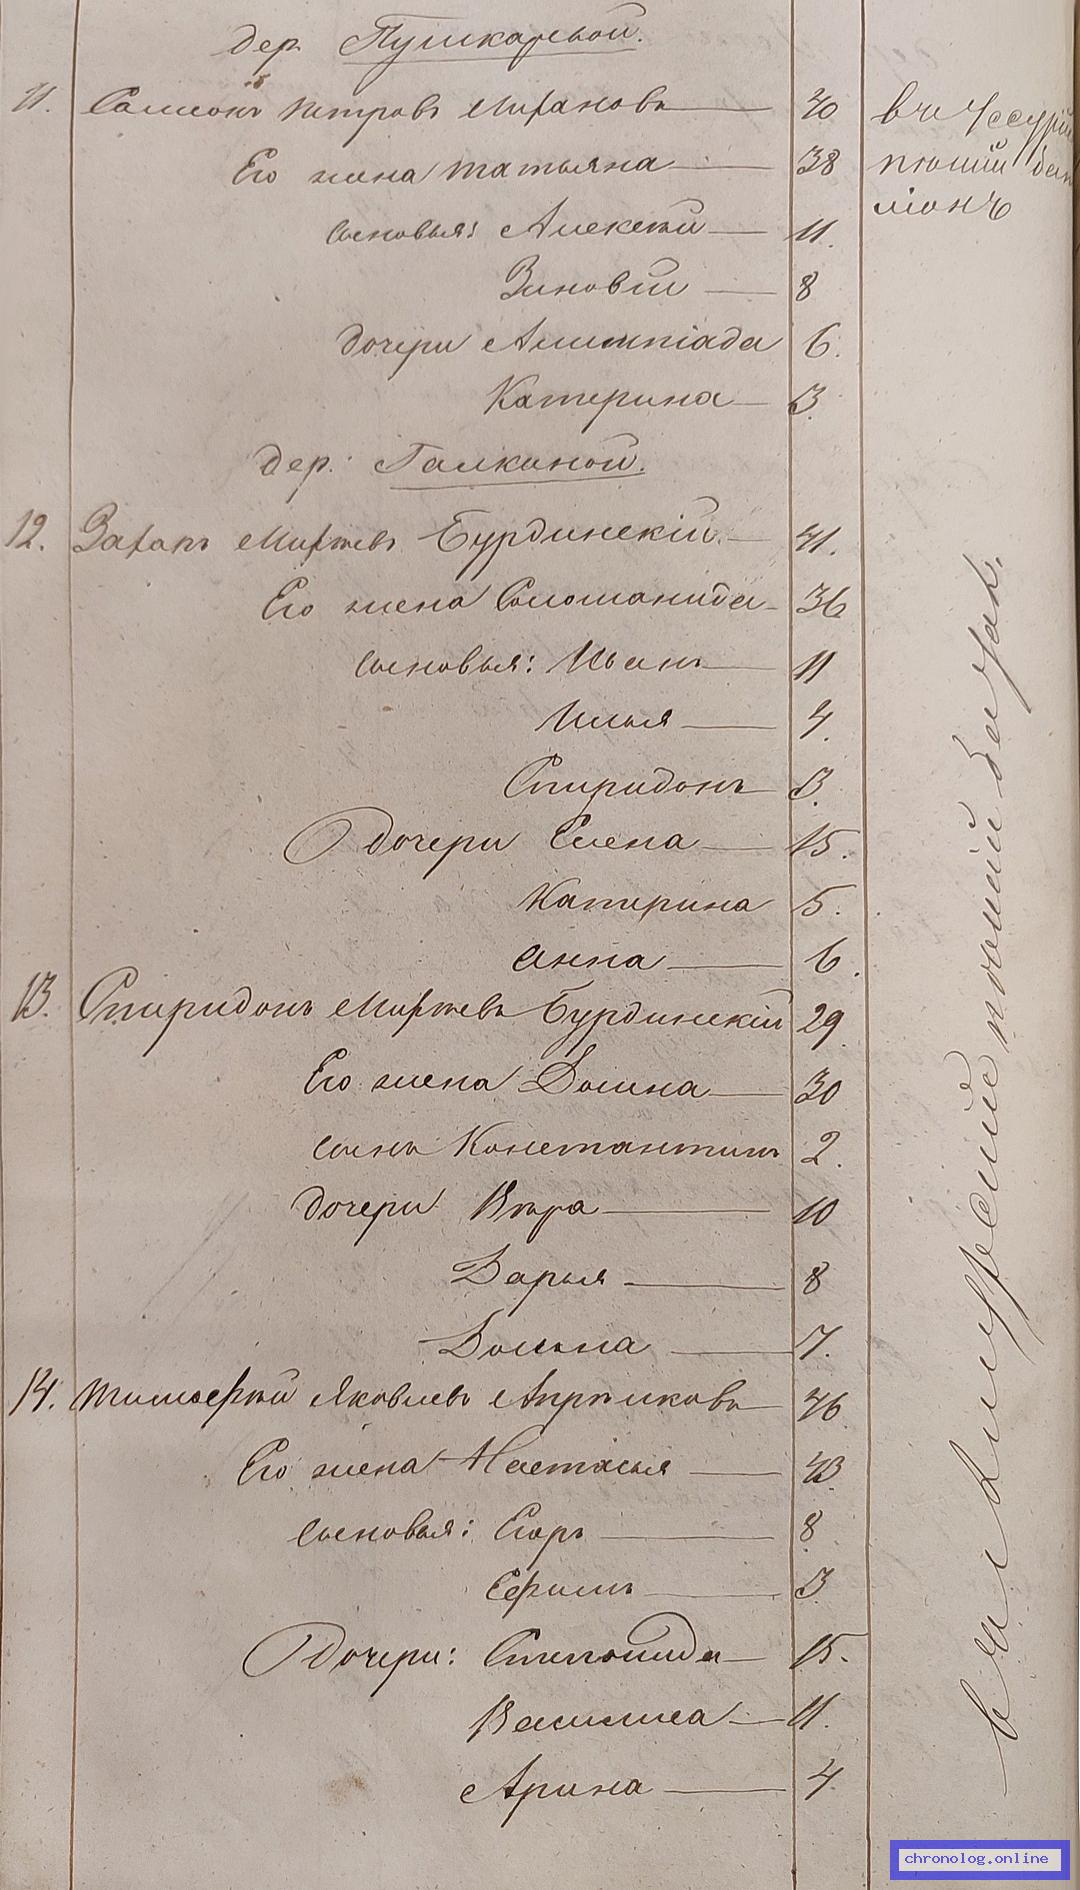 дер. Пушкарской.
11. Самсонъ Петровъ Мирановъ 40
Его жена Татьяна 38
сыновья: Алексѣй 11.
Зиновій 8
дочери Алимпіада 6.
Катерина 3
дер. Галкиной.
12. Захаръ Миртевъ Бурдинскій 41.
Его жена Соломанида 36
сыновья: Иванъ 11
Илья 4.
Спиридонъ 3.
Дочери Елена 15.
Катерина 5.
Анна 6.
13. Спиридонъ Миртевъ Бурдинскій 29.
Его жена Домна 30
сынъ Константинъ 2.
дочери Вѣра 10
Дарья 8
Домна 7.
14. Тимофей Яковлевъ 46
Его жена Настасья 43
сыновья: Егоръ 8
Ефимъ 3
Дочери: Степонида 15.
Василиса 11.
Арина 4
въ Уссурій
пѣший бат
ліонъ
въ Амурскій пѣший батал.
chronolog.online